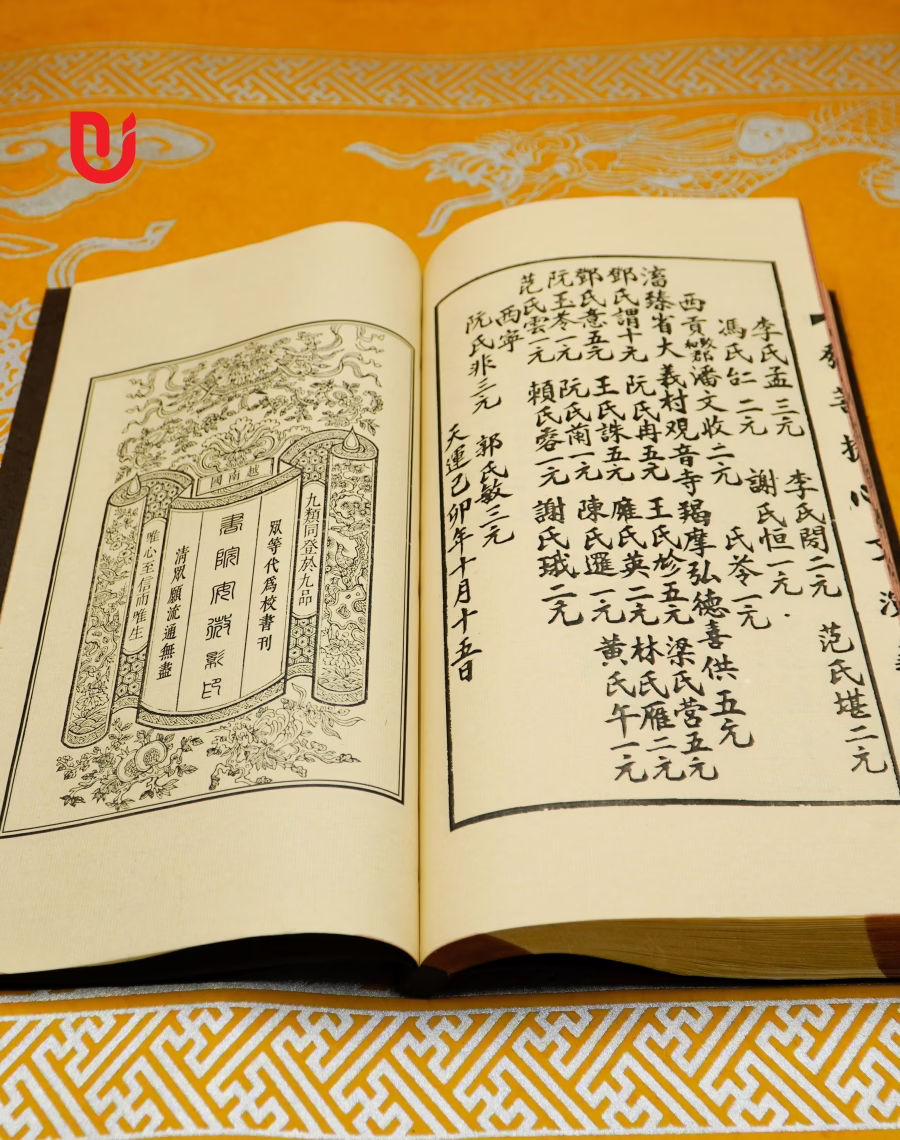 李氏閔二元 范氏堪二元
李氏孟三元 謝氏恒一元
馮氏台二元 氏苓一元
西貢 潘文收二元
滀臻省大義村观音寺羯摩弘德喜供五元
鄧氏謂十元 阮氏冉五元 王氏 五元 梁氏营五元
鄧氏意五元 王氏誅五元 龐氏英二元 林氏雁二元
阮玉苓一元 阮氏蘭一元 陳氏暹一元 黃氏午一元
范氏雲一元 賴氏蓉一元 謝氏珴二元
西寧
阮氏非三元 郭氏敏三元
天運己卯年十月十五日
越南國
九類同登於九品
眾等代爲校書刊
書院 影印
清眾願流通無盡
唯心至信而唯生